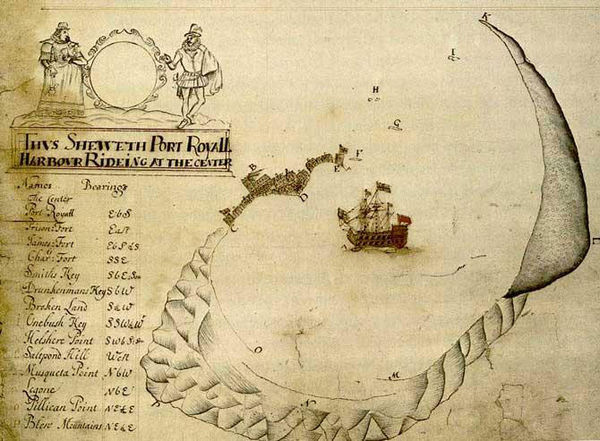 THVS SHEWETH PORT ROYALL
HARBOUR RIDEING AT THE CENTER
Names Bearings
The Center
Port Royall EbS
Prison: Fort East
James: Fort
Char: Fort SSE
Smiths Key
Drunkenmans Key SbW
Broken Land
Onebush Key
Helshere Point
Saltpond Hill West
Musqueta Point NbW
Legone NbE
Pillican Point
Blew Mountains
K
I
H
G
F
E
B
L
O
M
N